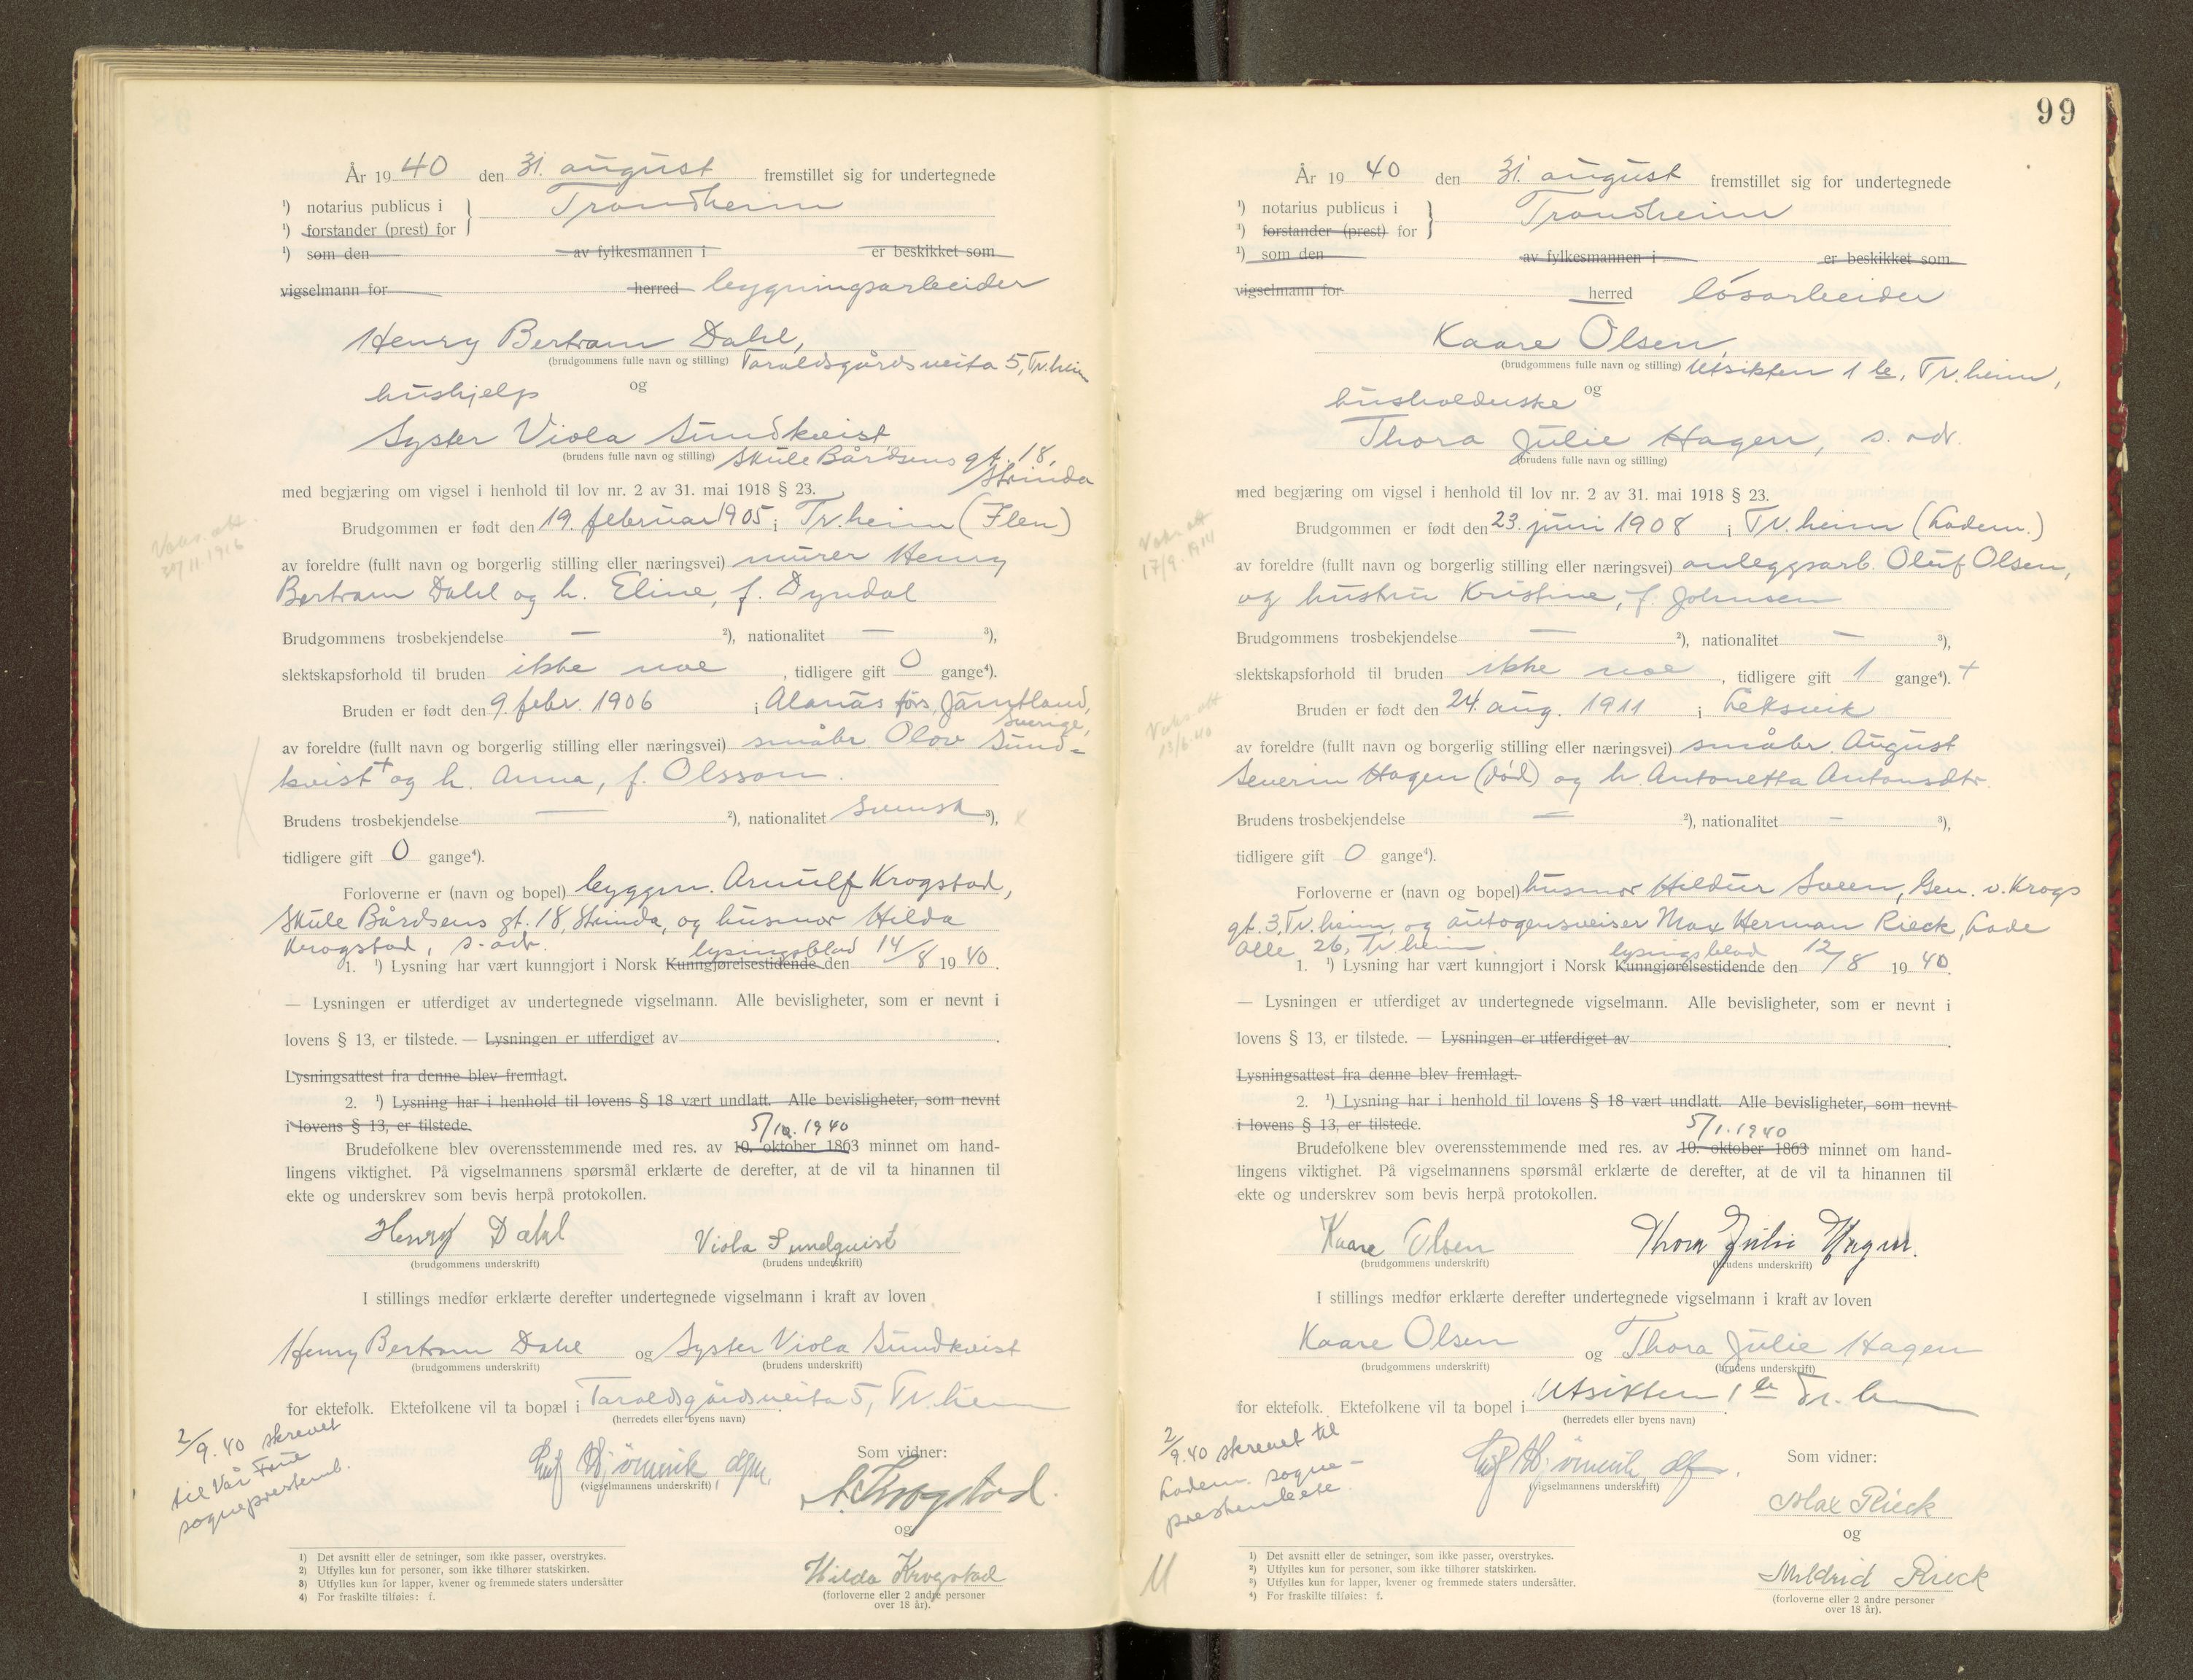 År 19 40 den 31. august fremstillet sig for undertegnede
¹) notarius publicus i } Trondheim
¹) forstander (prest) for
¹) som den av fylkesmannen i er beskikket som
vigselmann for herred bygningsarbeider
Henry Bertram Dahl,
(brudgommens fulle navn og stilling) Taraldsgårdsveita 5, Tr.heim
hushjelp og
Syster Viola Sundkvist
(brudens fulle navn og stilling) Skule Bårdsens gt. 18,
Strinda
med begjæring om vigsel i henhold til lov nr. 2 av 31. mai 1918 § 23.
Brudgommen er født den 19. februar 1905 i Tr.heim (Ilen)
Vaks. att.
av foreldre (fullt navn og borgerlig stilling eller næringsvei) murer Henry
Bertram Dahl og h. Eline, f. Dyndal
Brudgommens trosbekjendelse — ²), nationalitet — ³),
slektskapsforhold til bruden ikke noe , tidligere gift 0 gange⁴).
Bruden er født den 9. febr. 1906 i Alanäs förs, Jämtland,
Sverige,
av foreldre (fullt navn og borgerlig stilling eller næringsvei) småbr. Olov Sund-
kvist + og h. Anna, f. Olsson.
Brudens trosbekjendelse — ²), nationalitet Svensk ³),
tidligere gift 0 gange⁴).
Forloverne er (navn og bopel) byggm. Arnulf Krogstad,
Skule Bårdsens gt. 18, Strinda, og husmor Hilda
Krogstad, s. adr. lysingsblad
1. ¹) Lysning har vært kunngjort i Norsk Kunngjørelsestidende den 14/8 19 40.
— Lysningen er utferdiget av undertegnede vigselmann. Alle bevisligheter, som er nevnt i
lovens § 13, er tilstede. — Lysningen er utferdiget av .
Lysningsattest fra denne blev fremlagt.
2. ¹) Lysning har i henhold til lovens § 18 vært undlatt. Alle bevisligheter, som nevnt
i lovens § 13, er tilstede. 5/1. 1940
Brudefolkene blev overensstemmende med res. av 10. oktober 1863 minnet om hand-
lingens viktighet. På vigselmannens spørsmål erklærte de derefter, at de vil ta hinannen til
ekte og underskrev som bevis herpå protokollen.
Henry Dahl Viola Sundquist
(brudgommens underskrift) (brudens underskrift)
I stillings medfør erklærte derefter undertegnede vigselmann i kraft av loven
Henry Bertram Dahl og Syster Viola Sundkvist
(brudgommens underskrift) (brudens underskrift)
for ektefolk. Ektefolkene vil ta bopæl i Taraldsgårdsveita 5, Tr.heim
(herredets eller byens navn)
2/9.40 skrevet
til Vår Frue
sogneprestemb.
Som vidner:
(vigselmannens underskrift)
A. Krogstad.
og
Hilda Krogstad
(forloverne eller 2 andre personer
over 18 år).
1) Det avsnitt eller de setninger, som ikke passer, overstrykes.
2) Utfylles kun for personer, som ikke tilhører statskirken.
3) Utfylles kun for lapper, kvener og fremmede staters undersåtter
4) For fraskilte tilføies: f.
99
År 19 40 den 31. august fremstillet sig for undertegnede
¹) notarius publicus i } Trondheim
¹) forstander (prest) for
¹) som den av fylkesmannen i er beskikket som
vigselmann for herred løsarbeider
Kaare Olsen,
(brudgommens fulle navn og stilling) Utsikten 1 b, Tr.heim,
husholderske og
Thora Julie Hagen, s. adr.
(brudens fulle navn og stilling)
med begjæring om vigsel i henhold til lov nr. 2 av 31. mai 1918 § 23.
Brudgommen er født den 23. juni 1908 i Tr.heim (Ladem.)
Vaks. att
17/9. 1914
av foreldre (fullt navn og borgerlig stilling eller næringsvei) anleggsarb. Oluf Olsen,
og hustru Kristine, f. Johnsen
Brudgommens trosbekjendelse — ²), nationalitet — ³),
slektskapsforhold til bruden ikke noe , tidligere gift 1 gange⁴). +
Bruden er født den 24. aug. 1911 i Leksvik
Vaks. att
13/6.40
av foreldre (fullt navn og borgerlig stilling eller næringsvei) småbr. August
Severin Hagen (død) og h. Antonetta Antonsdtr.
Brudens trosbekjendelse — ²), nationalitet — ³),
tidligere gift 0 gange⁴).
Forloverne er (navn og bopel) husmor Hildur Sveen, Gen. v. Krogs
gt. 3, Tr.heim, og autogensveiser Max Herman Rieck, Lade
alle 26, Tr.heim lysingsblad
1. ¹) Lysning har vært kunngjort i Norsk Kunngjørelsestidende den 12/8 19 40.
— Lysningen er utferdiget av undertegnede vigselmann. Alle bevisligheter, som er nevnt i
lovens § 13, er tilstede. — Lysningen er utferdiget av .
Lysningsattest fra denne blev fremlagt.
2. ¹) Lysning har i henhold til lovens § 18 vært undlatt. Alle bevisligheter, som nevnt
i lovens § 13, er tilstede. 5/1. 1940
Brudefolkene blev overensstemmende med res. av 10. oktober 1863 minnet om hand-
lingens viktighet. På vigselmannens spørsmål erklærte de derefter, at de vil ta hinannen til
ekte og underskrev som bevis herpå protokollen.
Kaare Olsen Thora Julie Hagen.
(brudgommens underskrift) (brudens underskrift)
I stillings medfør erklærte derefter undertegnede vigselmann i kraft av loven
Kaare Olsen og Thora Julie Hagen
(brudgommens underskrift) (brudens underskrift)
for ektefolk. Ektefolkene vil ta bopel i Utsikten 1 b Tr.heim
(herredets eller byens navn)
2/9.40 skrevet til
Ladem. sogne-
prestembete.
Som vidner:
(vigselmannens underskrift)
Max Rieck
og
Mildrid Rieck
(forloverne eller 2 andre personer
over 18 år).
¹) Det avsnitt eller de setninger, som ikke passer, overstrykes.
²) Utfylles kun for personer, som ikke tilhører statskirken.
³) Utfylles kun for lapper, kvener og fremmede staters undersåtter.
⁴) For fraskilte tilføies: f.